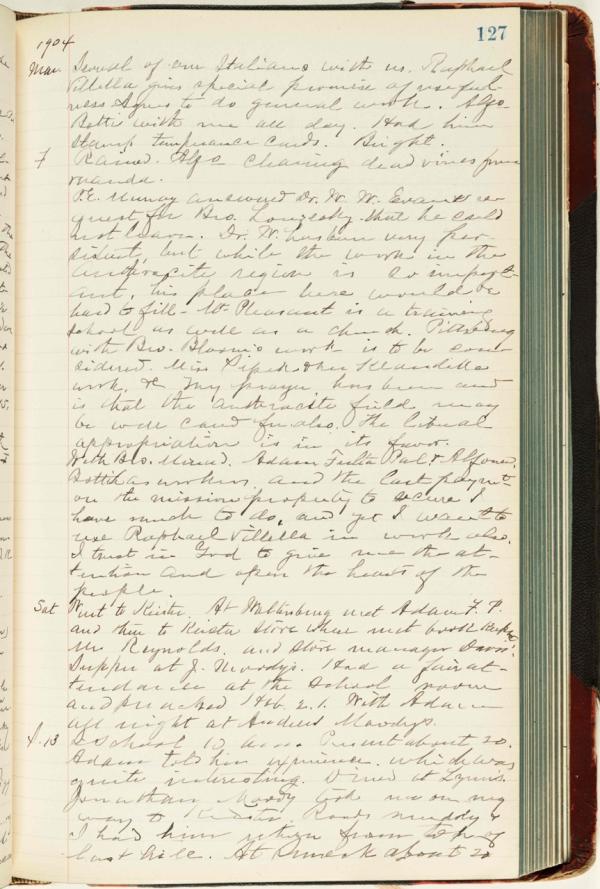 127
1904
Mar. Several of our Italians with us. Raphael
Villella gives special promise of useful-
ness. Agnes to do general work. Alfo.
Bottie with me all day. Had him
stamp temperance cards. Bright.
7 Rained. Alfo clearing dead vines from
veranda.
P.E. Murray answered Dr. W. W. Evans re-
quest for Bro. that he could
not leave. Dr. W. very per-
sistent, but while the work in the
anthracite region is so import-
ant, his place here would be
hard to fill - Mt. Pleasant is a training
school as well as a church.
with Bro. work is to be con-
sidered. Miss Piper & her
work, &c. My prayer has been and
is that the anthracite field may
be well cared for also. The liberal
appropriation is in its favor.
With Bro. Adam Fulta Paul & Alfonso
as workers, and the last paymt
on the mission property to secure I
have much to do, and yet I want to
use Raphael Villella in work also.
I trust in God to give me the at-
tention and open the hearts of the
people.
Sat Went to Keister. At met Adam F. P.
and then to Keister store where met book keeper
Mr Reynolds, and store manager
Supper at J. Moody's. Had a fair at-
tendance at the School room
and preached Heb. 2.1. With Adam
all night at Andrew Moody's.
S. 13 S School 10 a.m. Present about 20.
Adam told his experience which was
quite interesting. Dined at
Jonathan Moody took me on my
way to Keister. Roads muddy &
I had him return from top of
last hill. At about 20